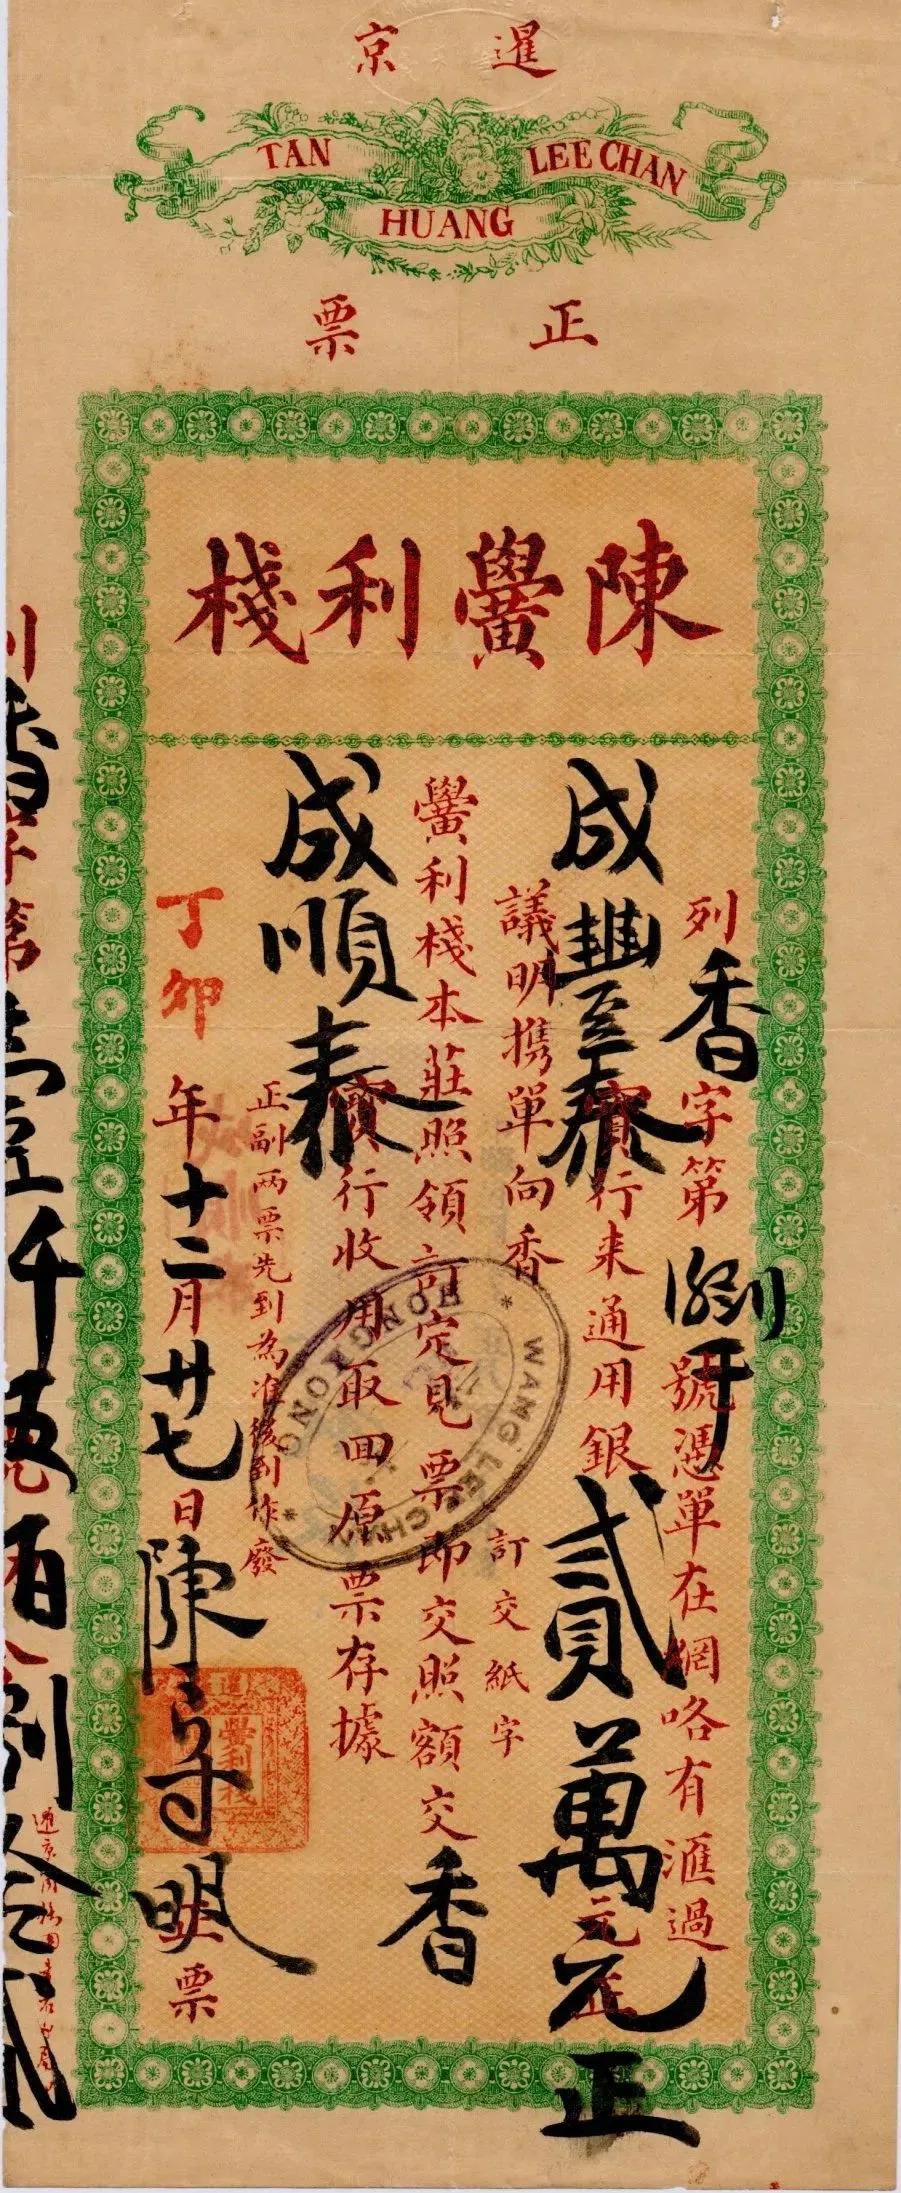 暹京
TAN HUANG LEE CHAN
正票
陳黌利棧
列香字第 號憑單在網咯有滙過
成豐泰寶行来通用銀貳萬元正
議明携單向香 訂交紙字
黌利棧本莊照領訂定見票即交照額交香
成順泰寶行收用取回原票存據
正副两票先到為准後到作廢
丁卯年十二月廿七日陳守明 票
黌利棧
WANG LEE CHAN
HONG KONG